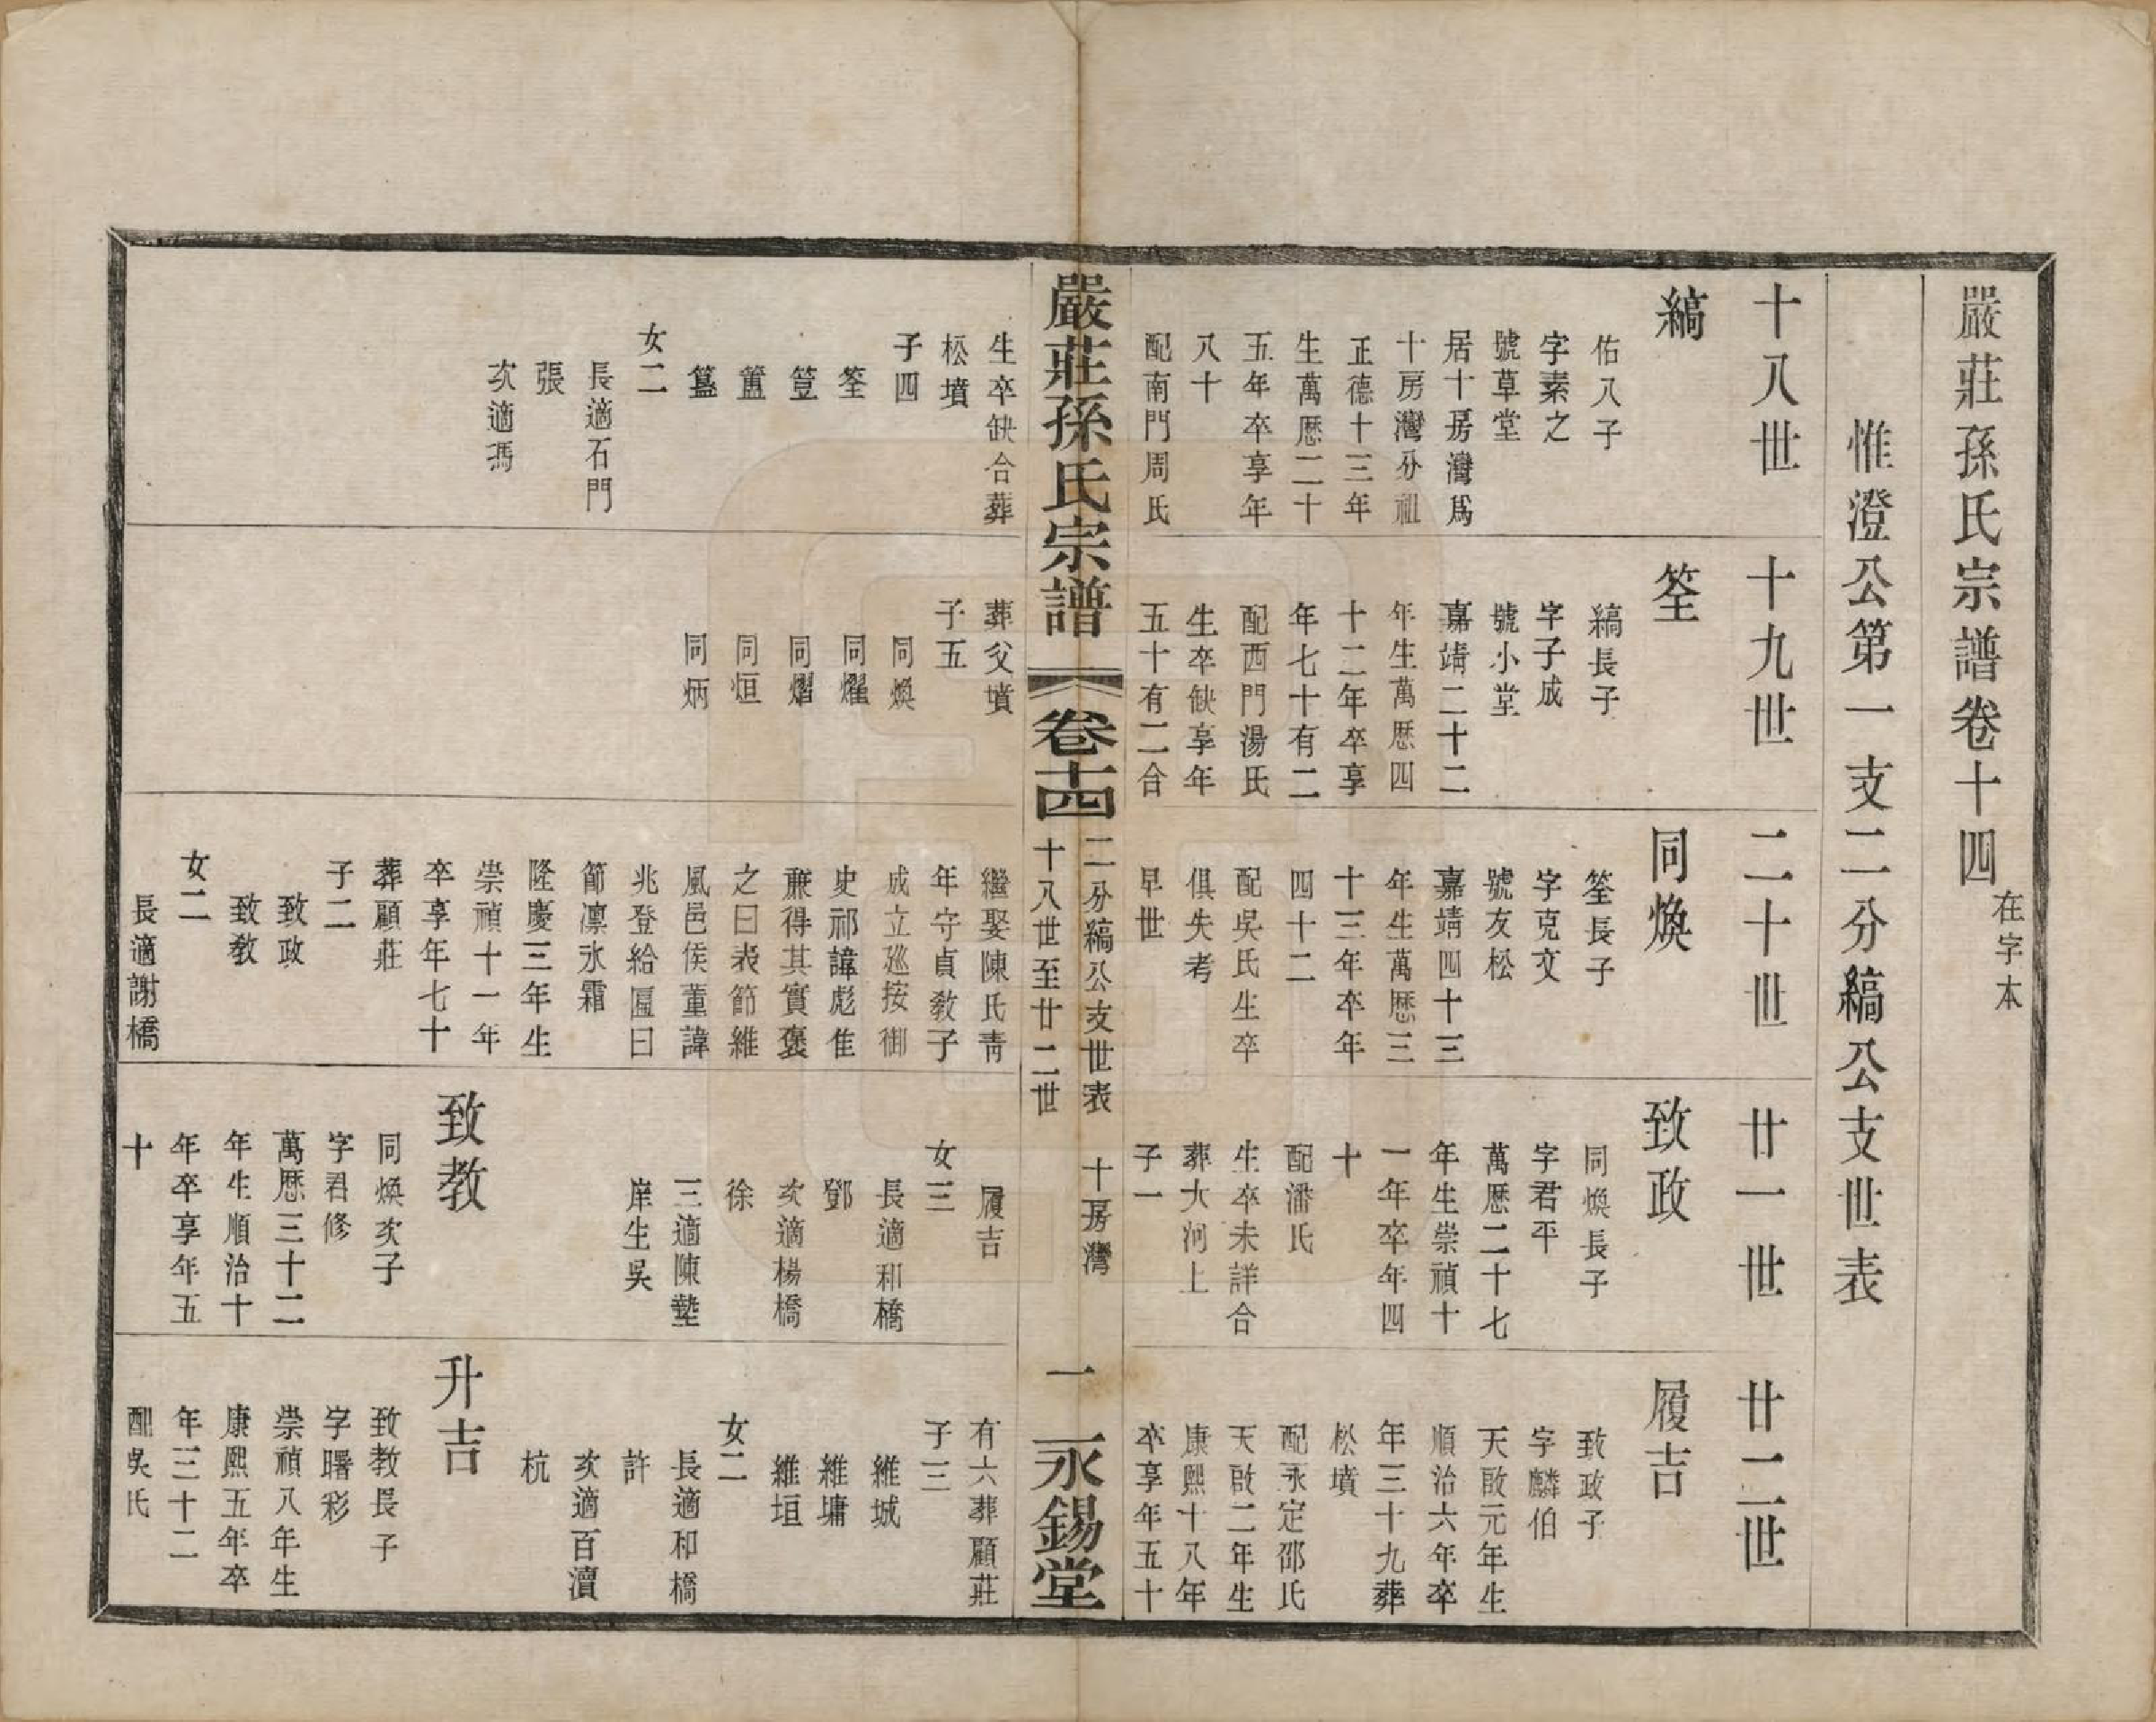 嚴莊孫氏宗譜卷十四 在字本
惟澄公第一支二分縞公支世表
十八世
十九世
二十世
廿一世
廿二世
縞
佑八子
字素之
號草堂
居十房灣爲
十房灣分祖
正德十三年
生萬厯二十
五年卒享年
八十
配南門周氏
生卒缺合葬
松墳
子四
筌
簦
簠
簋
女二
長適石門
張
次適馮
筌
縞長子
字子成
號小堂
嘉靖二十二
年生萬厯四
十二年卒享
年七十有二
配西門湯氏
生卒缺享年
五十有二合
葬父墳
子五
同煥
同燿
同熠
同烜
同炳
同煥
筌長子
字克文
號友松
嘉靖四十三
年生萬厯三
十三年卒年
四十二
配吳氏生卒
俱失考
早世
繼娶陳氏靑
年守貞敎子
成立廵按御
史祁諱彪隹
亷得其實褒
之曰表節維
風邑侯董諱
兆登給匾曰
節凛氷霜
隆慶三年生
崇禎十一年
卒享年七十
葬顧莊
子二
致政
致教
女二
長適謝橋
致政
同煥長子
字君平
萬厯二十七
年生崇禎十
一年卒年四
十
配潘氏
生卒未詳合
葬大河上
子一
履吉
女三
長適和橋
鄧
次適楊橋
徐
三適陳塾
岸生吳
致教
同煥次子
字君修
萬厯三十二
年生順治十
年卒享年五
十
履吉
致政子
字麟伯
天啟元年生
順治六年卒
年三十九葬
松墳
配永定邵氏
天啟二年生
康熙十八年
卒享年五十
有六葬顧莊
子三
維城
維墉
維垣
女二
長適和橋
許
次適百瀆
杭
升吉
致教長子
字曙彩
崇禎八年生
康熙五年卒
年三十二
配吳氏
嚴莊孫氏宗譜 卷十四
二分縞公支世表 十房灣
十八世至廿二世
一
永錫堂